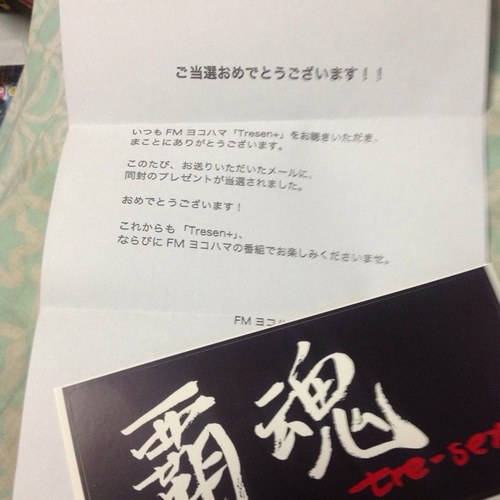 ご当選おめでとうございます！！
いつもFMヨコハマ「Tresen+」をお聴きいただき、
まことにありがとうございます。
このたび、お送りいただいたメールに、
同封のプレゼントが当選されました。
おめでとうございます！
これからも「Tresen+」、
ならびにFMヨコハマの番組でお楽しみくださいませ。
FMヨコハ
覇魂
tre-sen